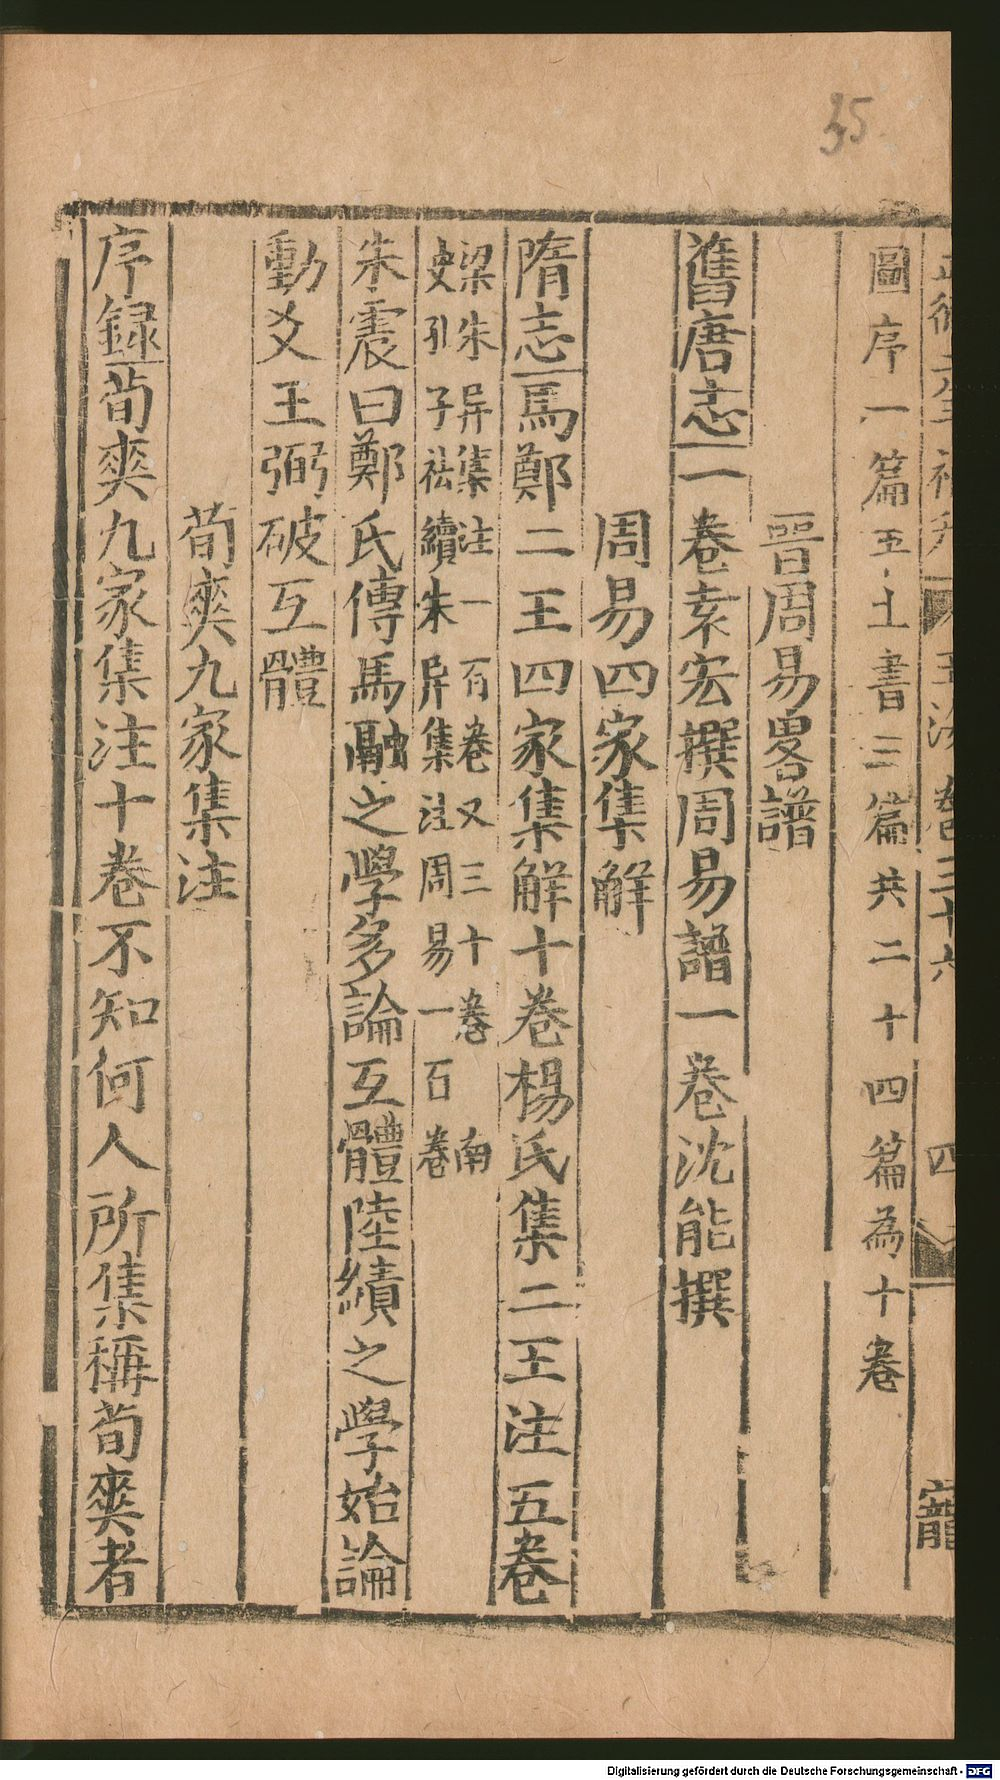 35
玉海卷三十六 四
圖序一篇五土書三篇共二十四篇為十卷
晉周易畧譜
舊唐志一卷袁宏撰周易譜一卷沈能撰
周易四家集解
隋志馬鄭二王四家集解十卷楊氏集二王注五卷
梁朱异集注一百卷又三十卷南
史孔子祛續朱异集注周易一百卷
朱震曰鄭氏傳馬融之學多論互體陸績之學始論
動爻王弼破互體
荀爽九家集注
序録荀爽九家集注十卷不知何人所集稱荀爽者
Digitalisierung gefördert durch die Deutsche Forschungsgemeinschaft - DFG